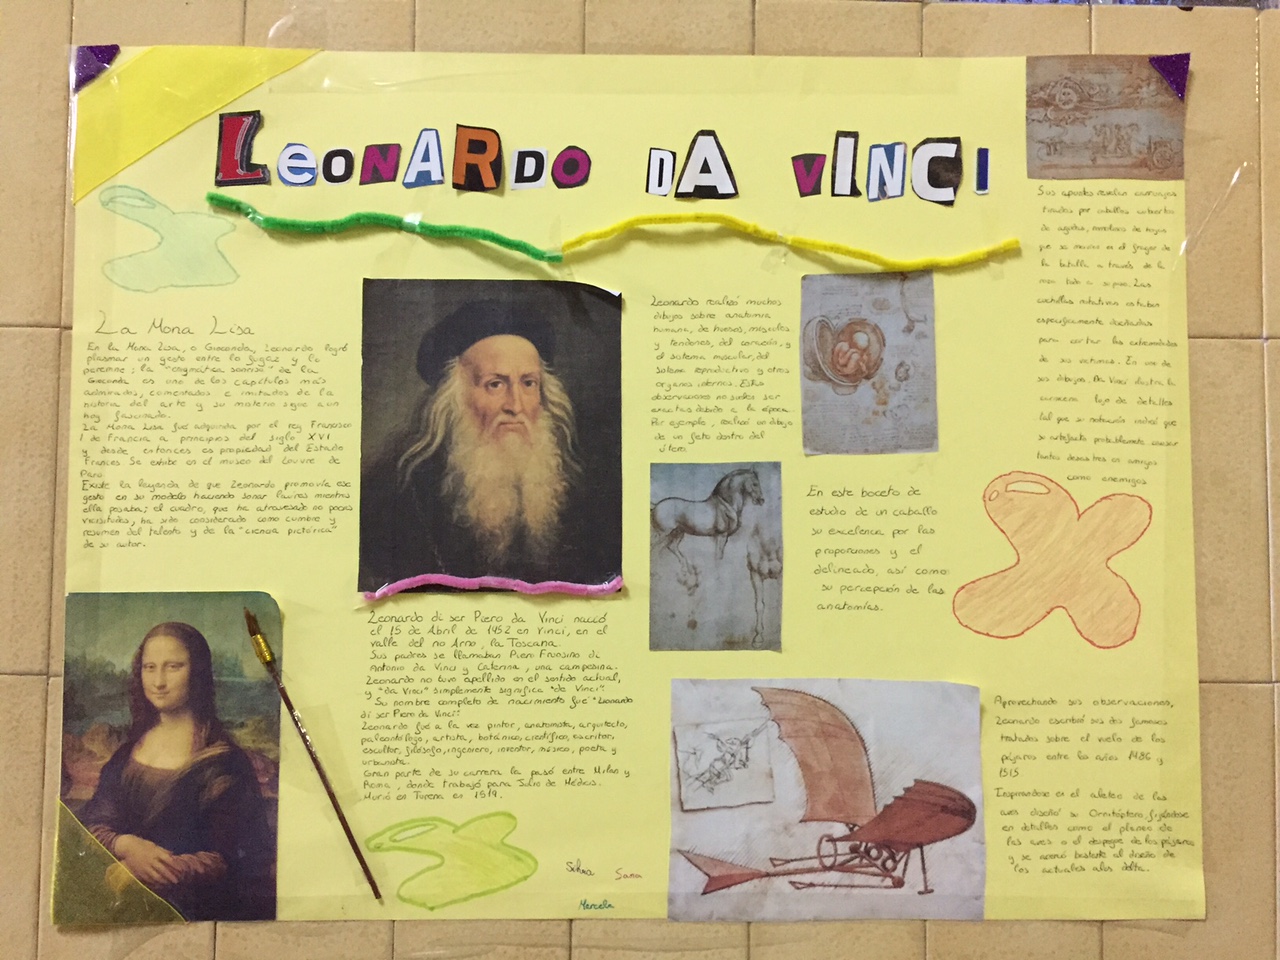 LeonARDO DA vINCI
La Mona Lisa
En la Mona Lisa, o Gioconda, Leonardo logró
plasmar un gesto entre lo fugaz y lo
perenne; la "enigmática sonrisa" de la
Gioconda es uno de los capítulos más
admirados, comentados e imitados de la
historia del arte y su misterio sigue aun
hoy fascinando.
La Mona Lisa fué adquirida por el rey Francisco
I de Francia a principios del siglo XVI
y desde entonces es propiedad del Estado
Frances Se exhibe en el museo del Louvre de
Paris.
Existe la leyenda de que Leonardo promovía ese
gesto en su modelo haciendo sonar laúdes mientras
ella posaba; el cuadro, que ha atravesado no pocas
vicisitudes, ha sido considerado como cumbre y
resumen del talento y de la "ciencia pictórica"
de su autor.
Leonardo di ser Piero da Vinci nació
el 15 de Abril de 1452 en Vinci, en el
valle del río Arno, la Toscana.
Sus padres se llamaban Piero Fruosino di
Antonio da Vinci y Caterina, una campesina.
Leonardo no tuvo apellido en el sentido actual,
y "da Vinci" simplemente significa "de Vinci".
Su nombre completo de nacimiento fué "Leonardo
di ser Piero da Vinci".
Leonardo fué a la vez pintor, anatomista, arquitecto,
paleontólogo, artista, botánico, científico, escritor,
escultor, filósofo, ingeniero, inventor, músico, poeta y
urbanista.
Gran parte de su carrera la pasó entre Milan y
Roma, donde trabajó para Julio de Médicis.
Murió en Turena en 1519.
Leonardo realizó muchos
dibujos sobre anatomía
humana, de huesos, músculos
y tendones, del corazón, y
el sistema muscular, del
sistema reproductivo y otros
organos internos. Estas
observaciones no suelen ser
exactas debido a la época.
Por ejemplo, realizó un dibujo
de un feto dentro del
útero
En este boceto de
estudio de un caballo
su excelencia por las
proporciones y el
delineado, así como
su percepción de las
anatomías.
Sus apuntes revelan carruajes
tirados por caballos cubiertos
de agudas, de hojas
que se movían en el fragor de
la batalla a través de la
a su paso. Las
cuchillas rotativas estaban
específicamente diseñadas
para cortar las extremidades
de sus victimas. En uno de
sus dibujos. Da Vinci ilustra la
con lujo de detalles
tal que su notación indicó que
su artefacto probablemente causar
tantos desastres en amigos
como enemigos
Aprovechando sus observaciones,
Leonardo escribió sus dos famosos
tratados sobre el vuelo de los
pájaros entre los años 1486 y
1515
Inspirándose en el aleteo de las
aves diseñó su Ornitóptero, fijándose
en detalles como el planeo de
las aves o el despegue de los pájaros
y se acercó bastante al diseño de
los actuales alas delta.
Sana
Marcela